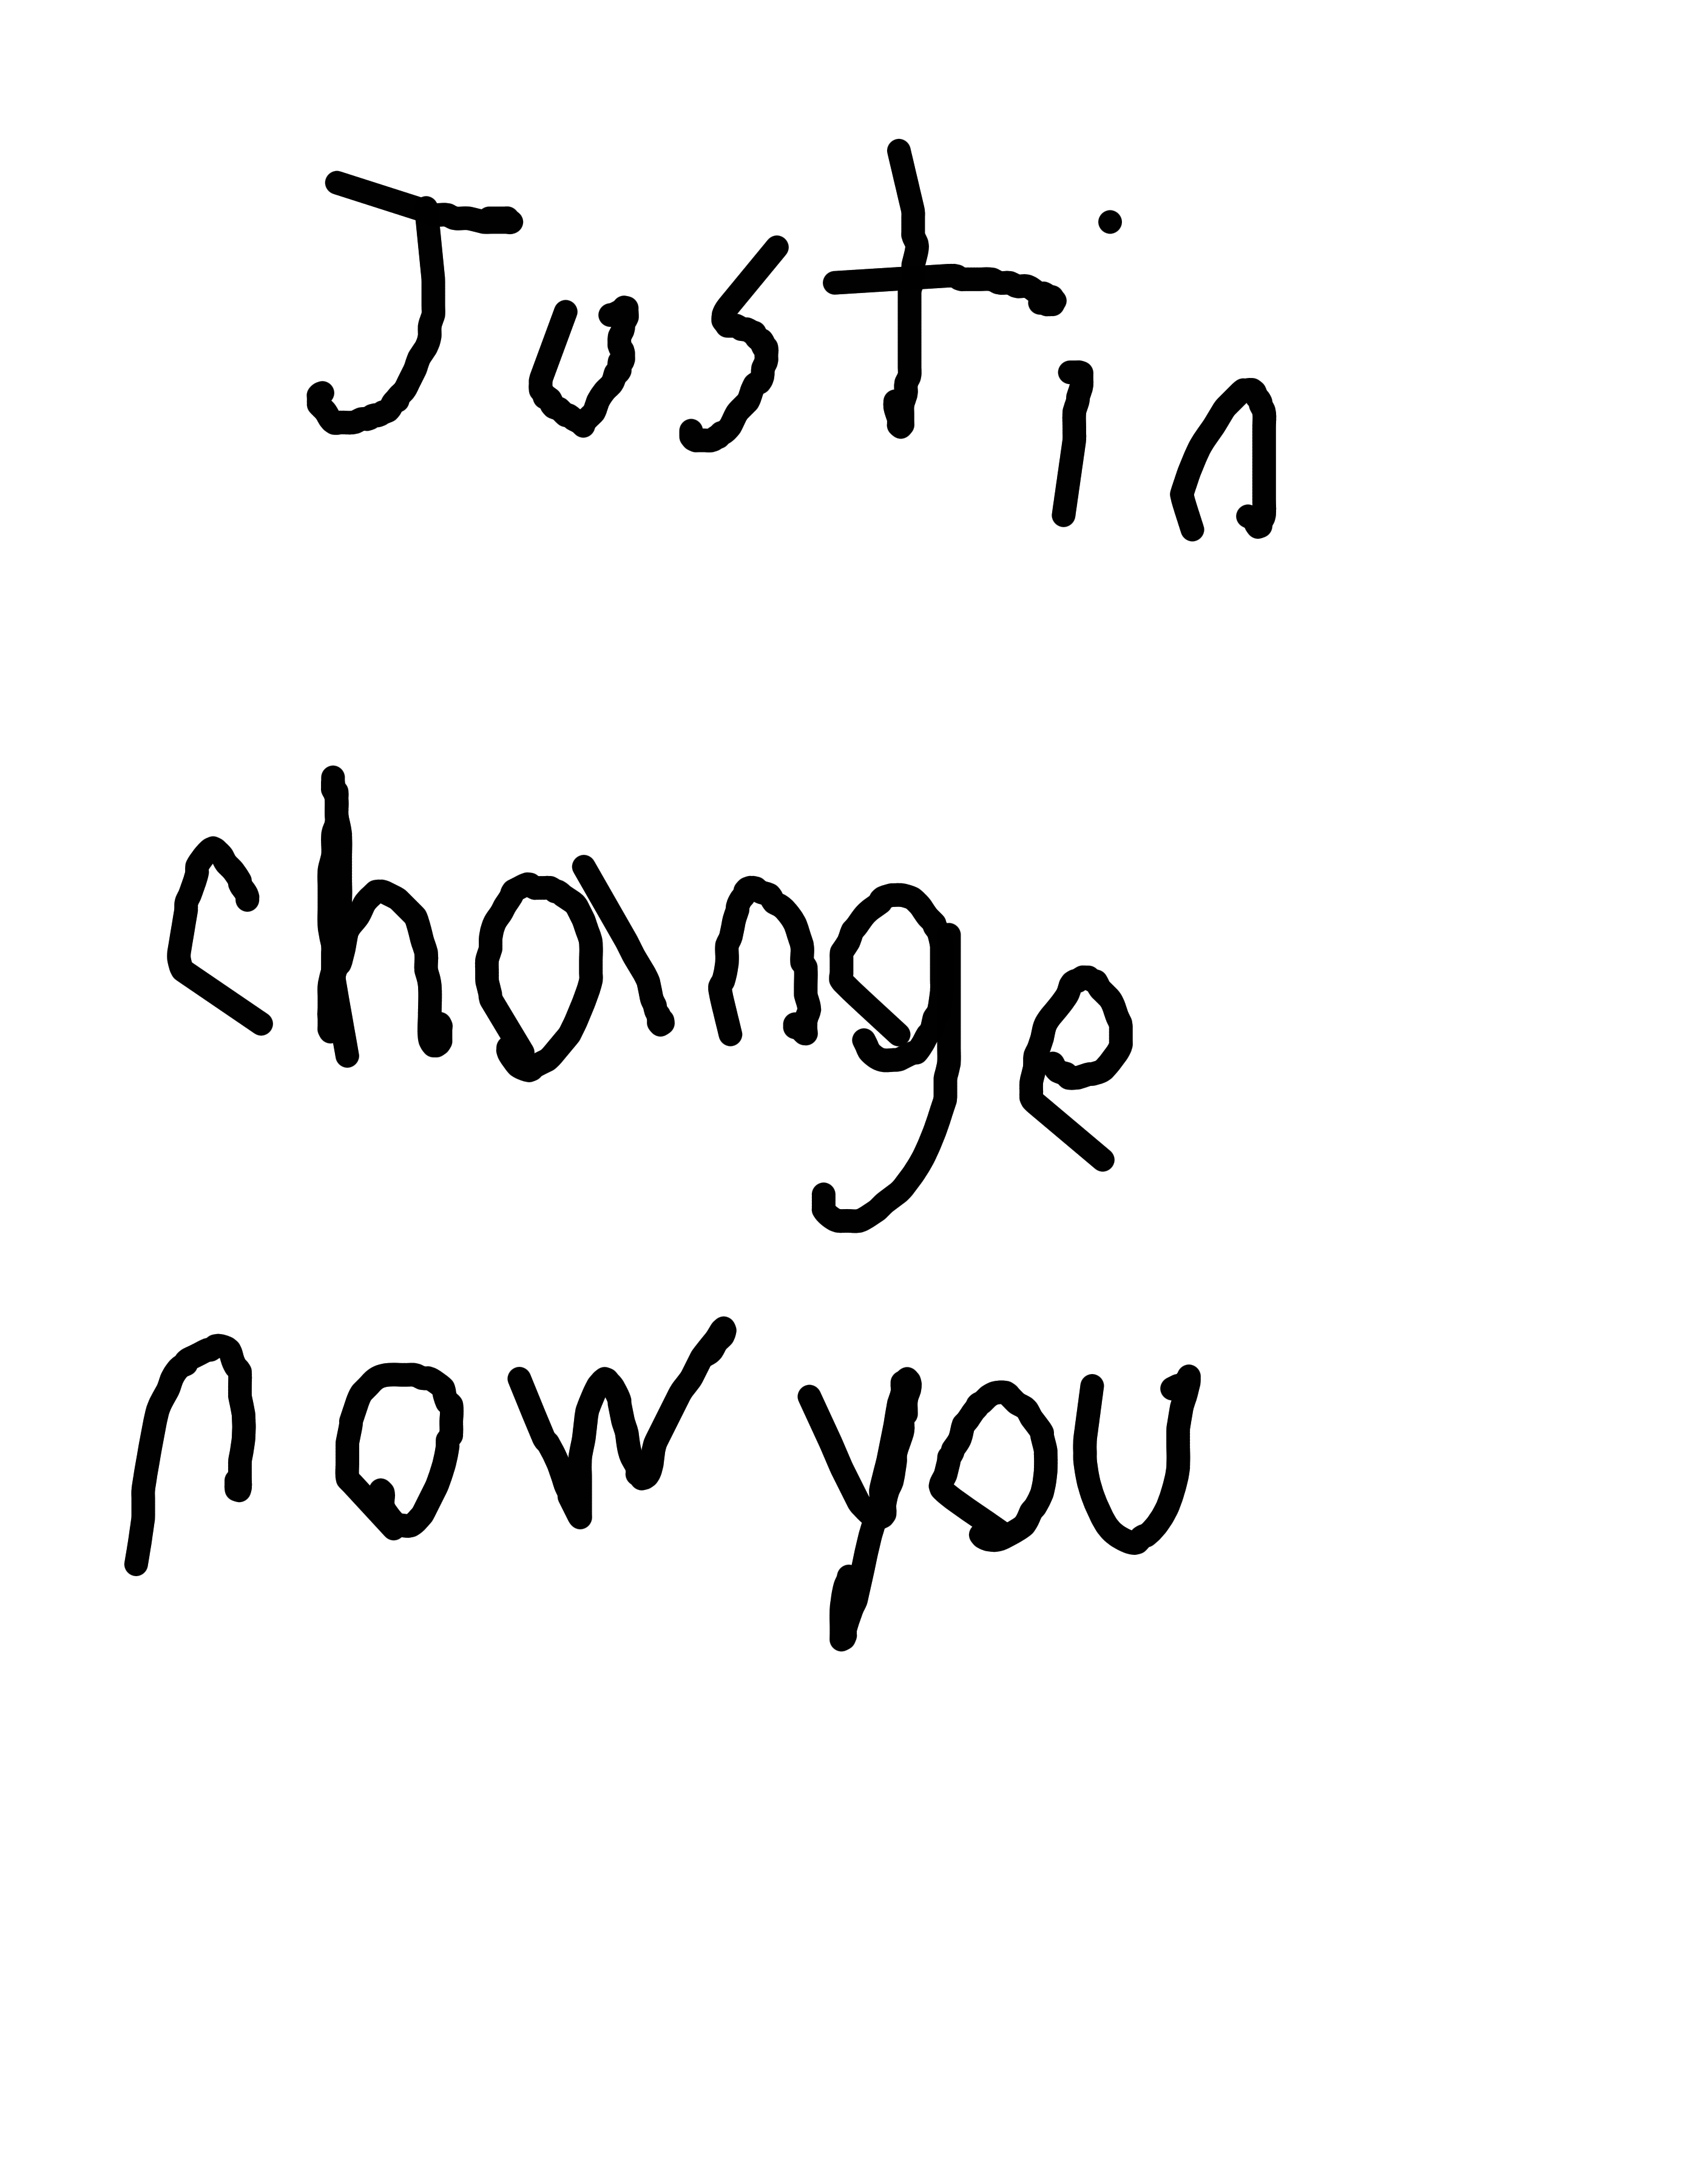 Justin
change
now you